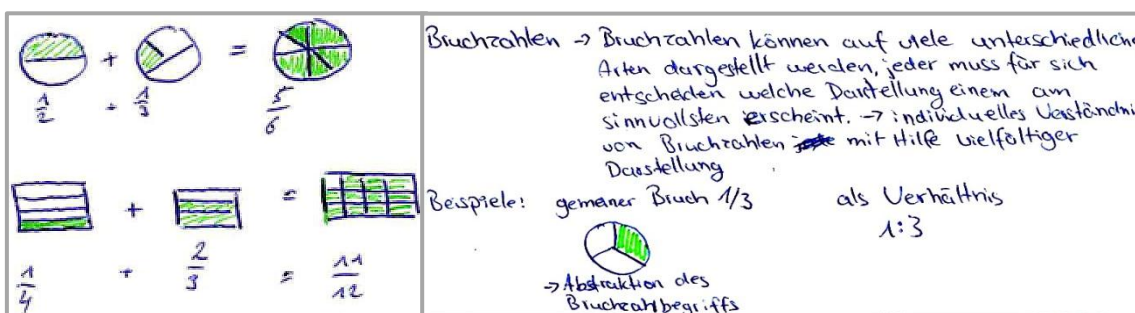 + =
1/2 + 1/3 5/6
+ =
1/4 + 2/3 = 11/12
Bruchzahlen → Bruchzahlen können auf viele unterschiedliche
Arten dargestellt werden, jeder muss für sich
entscheiden welche Darstellung einem am
sinnvollsten erscheint. → individuelles Verständni
von Bruchzahlen mit Hilfe vielfältiger
Darstellung
Beispiele: gemeiner Bruch 1/3 als Verhältnis
1:3
→ Abstraktion des
Bruchzahlbegriffs